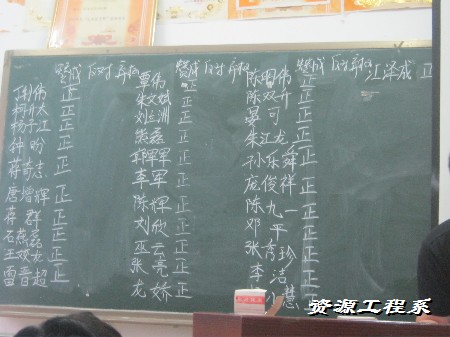 赞成 反对 弃权 赞成 反对 弃权 赞成 反对 弃权
江泽成 正
伟 正
杨于江 正
钟盼 正
蒋奇志 正
唐增辉 正
蒋群 正
石燕磊 正
王姣龙 正
雷晋超 正
覃伟 正
朱文斌 正
刘志洲 正
熊磊 正
郭军军 正
李军 正
陈辉 正
刘欣 正
巫云 正
张亮 正
龙娇 正
陈国伟 正
陈双升 正
晏可 正
朱江龙 正
孙乐舜 正
庞俊祥 正
陈九一 正
邓平 正
张青珍 正
李洁 正
慧 正
资源工程系